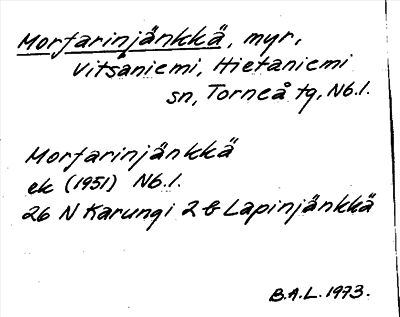 Morjarinjänkkä, myr,
Vitsäniemi, Hietaniemi
sn, Torneå tg, Nb.l.
Morjarinjänkkä
ek (1951) Nb.l.
26 N Karungi 2 b Lapinjänkkä
B.A.L. 1973.